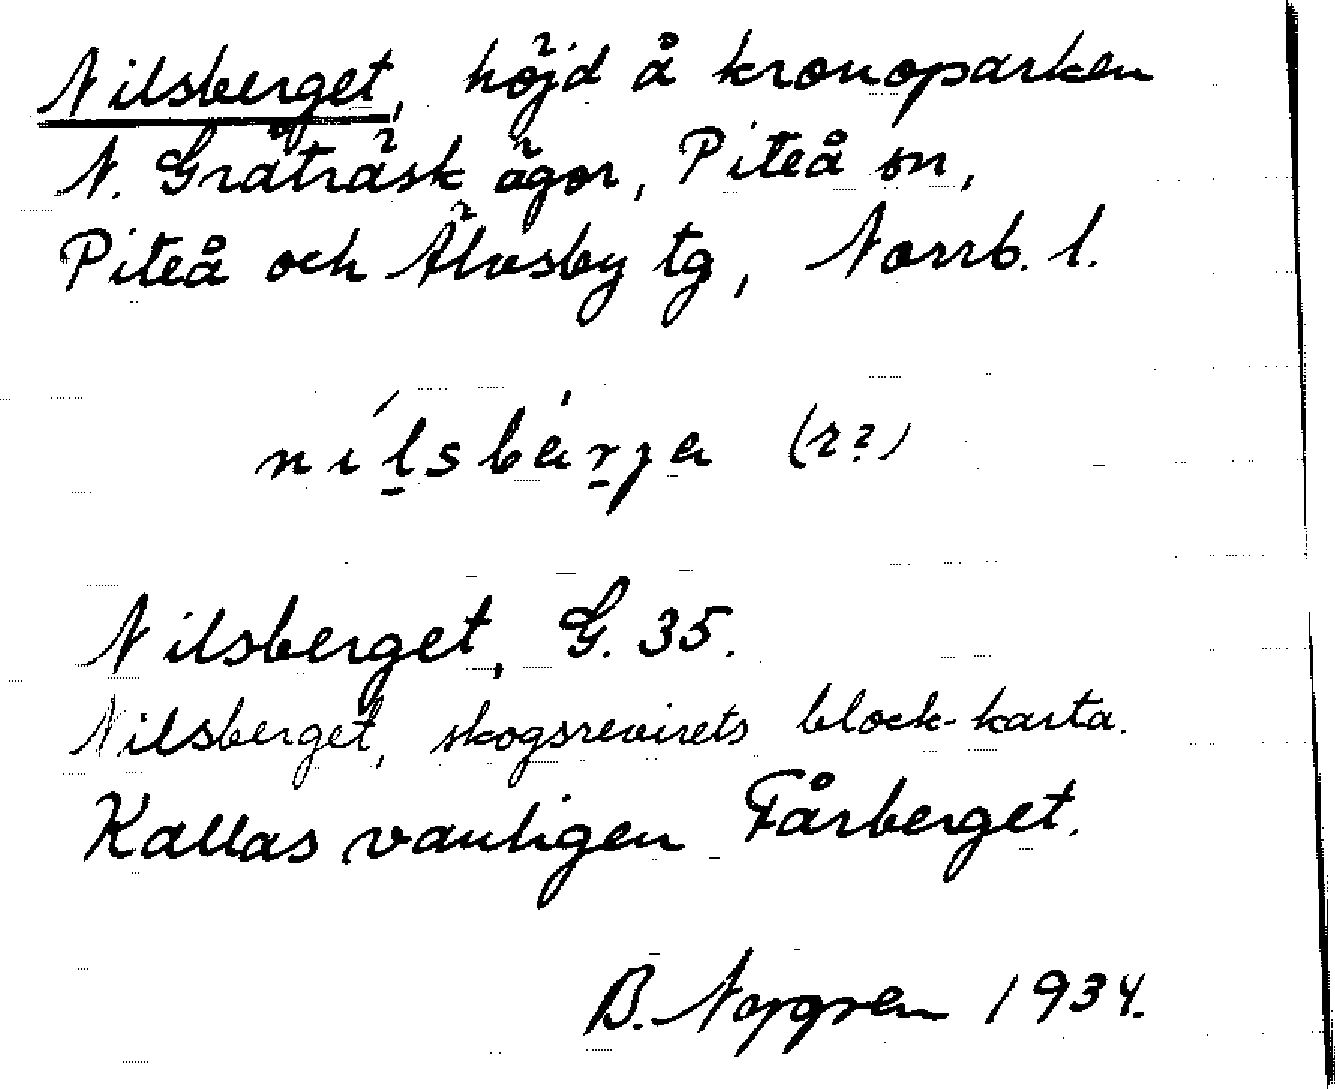 Nilsberget, höjd å kronoparken
N. Gråträsk ägor, Piteå sn,
Piteå och Älvsby tg, Norrb. l.
(r?)
Nilsberget, G. 35.
Nilsberget, skogsrevirets block-karta.
Kallas vanligen Fårberget.
B. 1934.